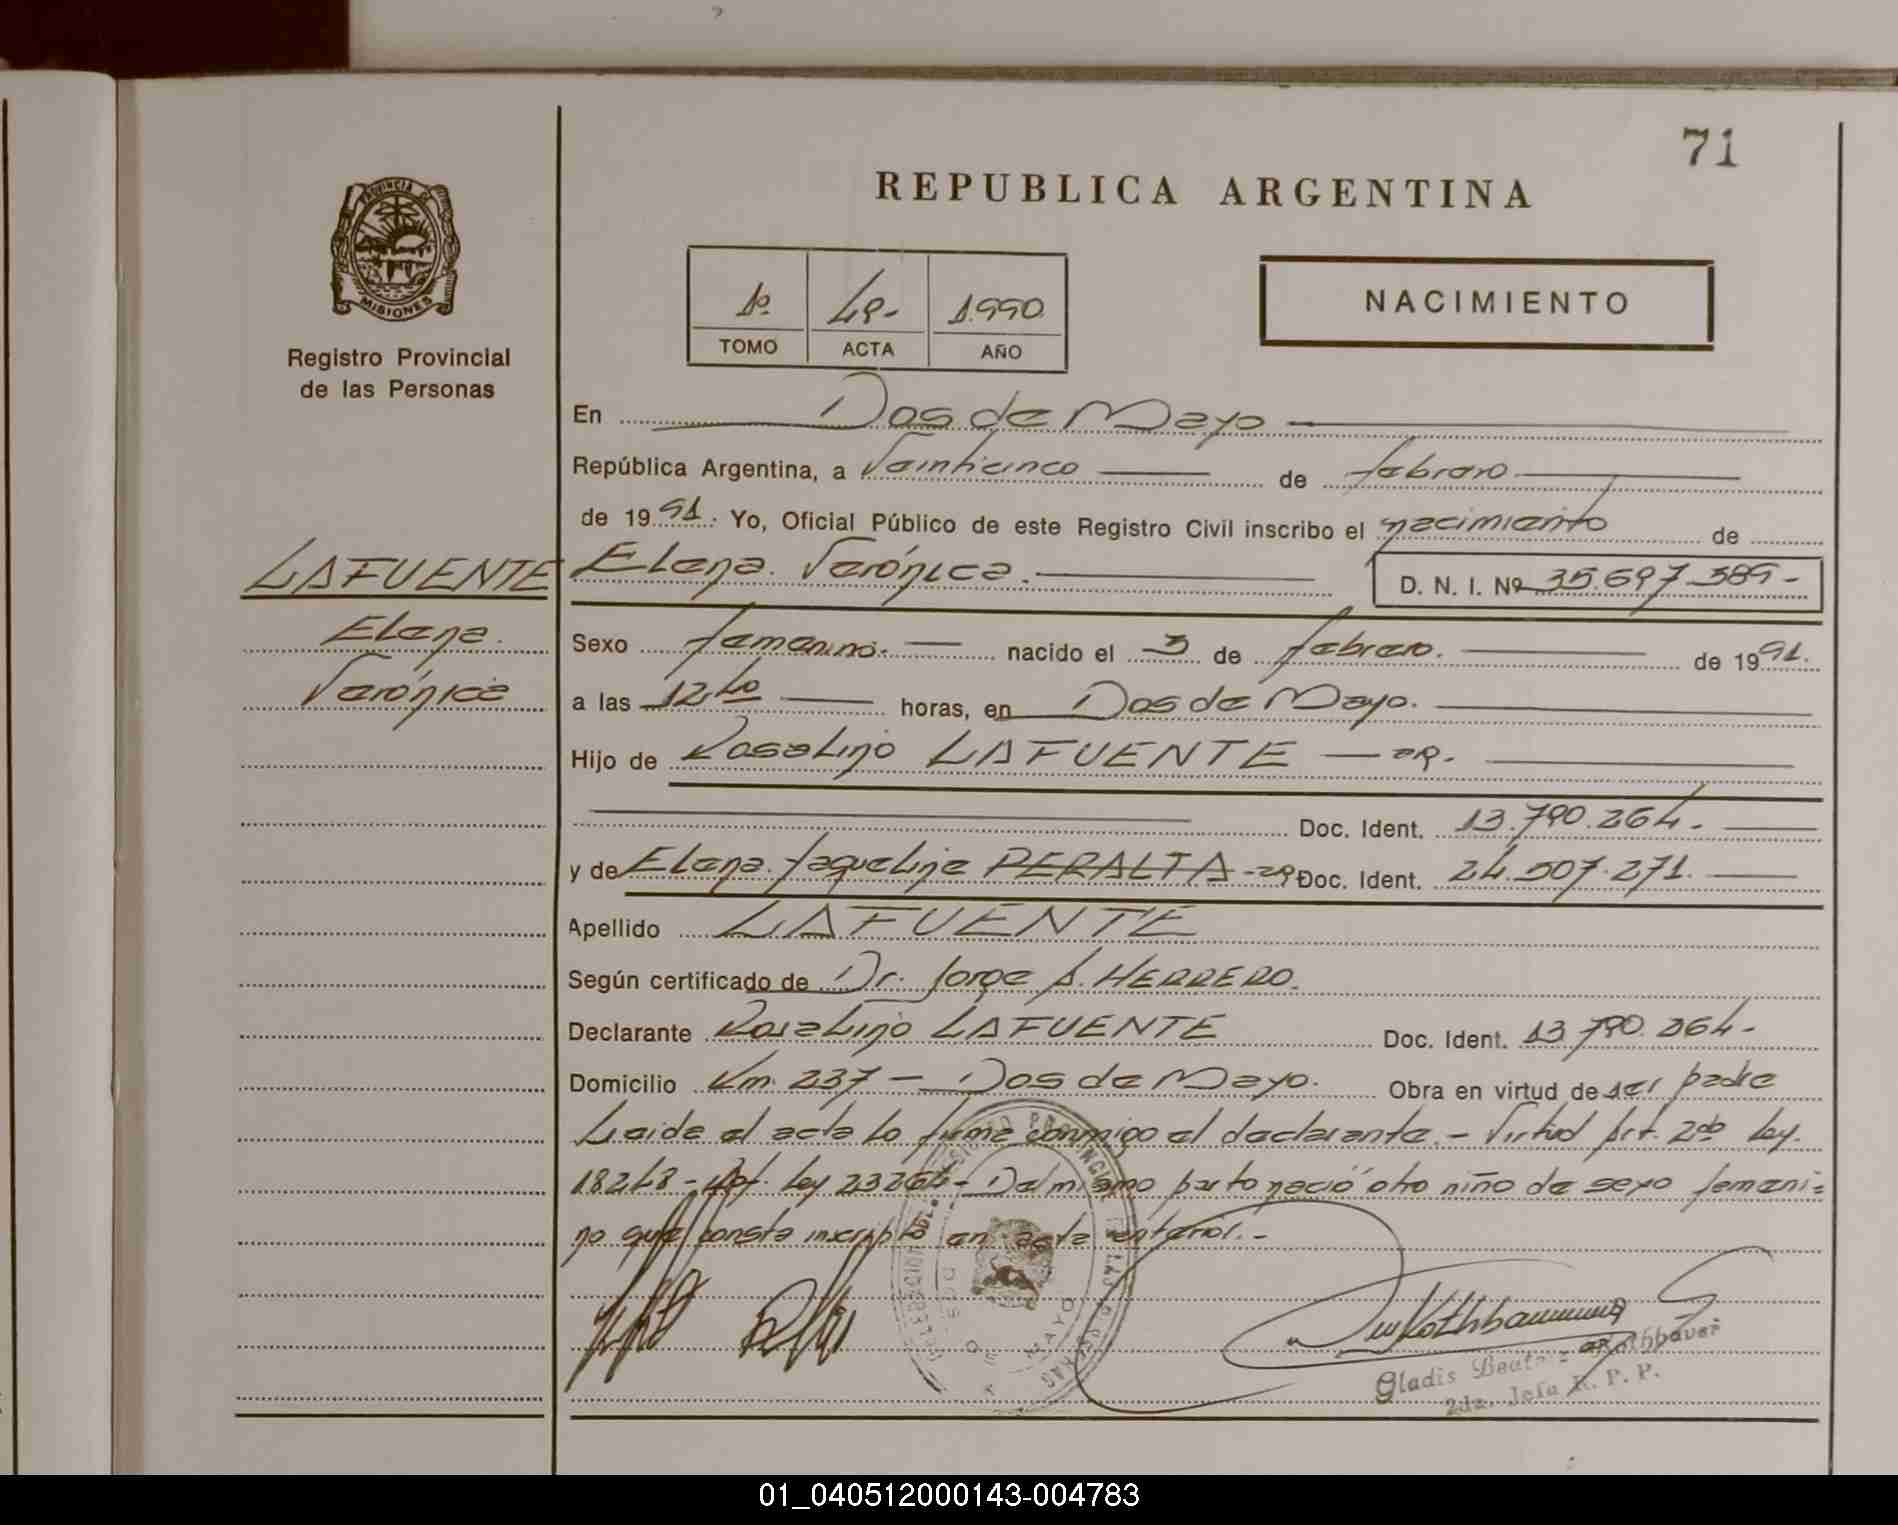 71
REPUBLICA ARGENTINA
PROVINCIA DE
MISIONES
Registro Provincial
de las Personas
1º 1.990.
TOMO ACTA AÑO
NACIMIENTO
En Dos de Mayo
República Argentina, a Veinticinco de febrero
de 1991. Yo, Oficial Público de este Registro Civil inscribo el nacimiento de
LAFUENTE Elena Verónica. D. N. I. Nº 35.697.389-
Elena.
Verónica
Sexo femenino. nacido el 3 de febrero. de 1991.
a las 12 horas, en Dos de Mayo.
Hijo de Rosalino LAFUENTE
Doc. Ident. 13.790.264.
y de Elena Jaqueline PERALTA Doc. Ident. 24.507.271.
Apellido LAFUENTE
Según certificado de Dr. Jorge A. HERRERO.
Declarante Rosalino LAFUENTE Doc. Ident. 13.790.264-
Domicilio Km. 237 - Dos de Mayo. Obra en virtud de ser padre
Leida el acta la firma conmigo el declarante.- Virtud Art. 2do Ley.
18248 - Ley 23264- Del mismo parto nació otro niño de sexo femeni=
no que consta inscripto en acta anterior.-
DOS DE MAYO
Gladis Rothbauer
2da. Jefa R. P. P.
01_040512000143-004783